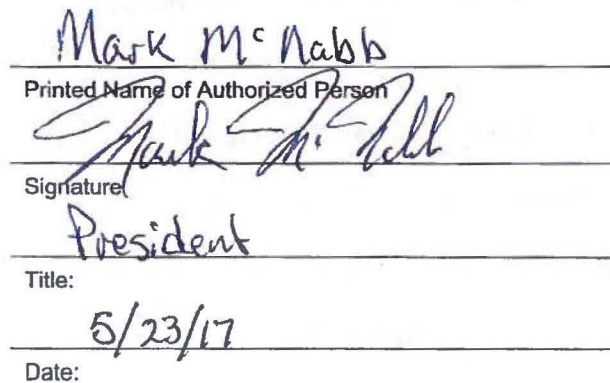 Mark McNabb
Printed Name of Authorized Person
Mark McNabb
Signature
President
Title:
5/23/17
Date: